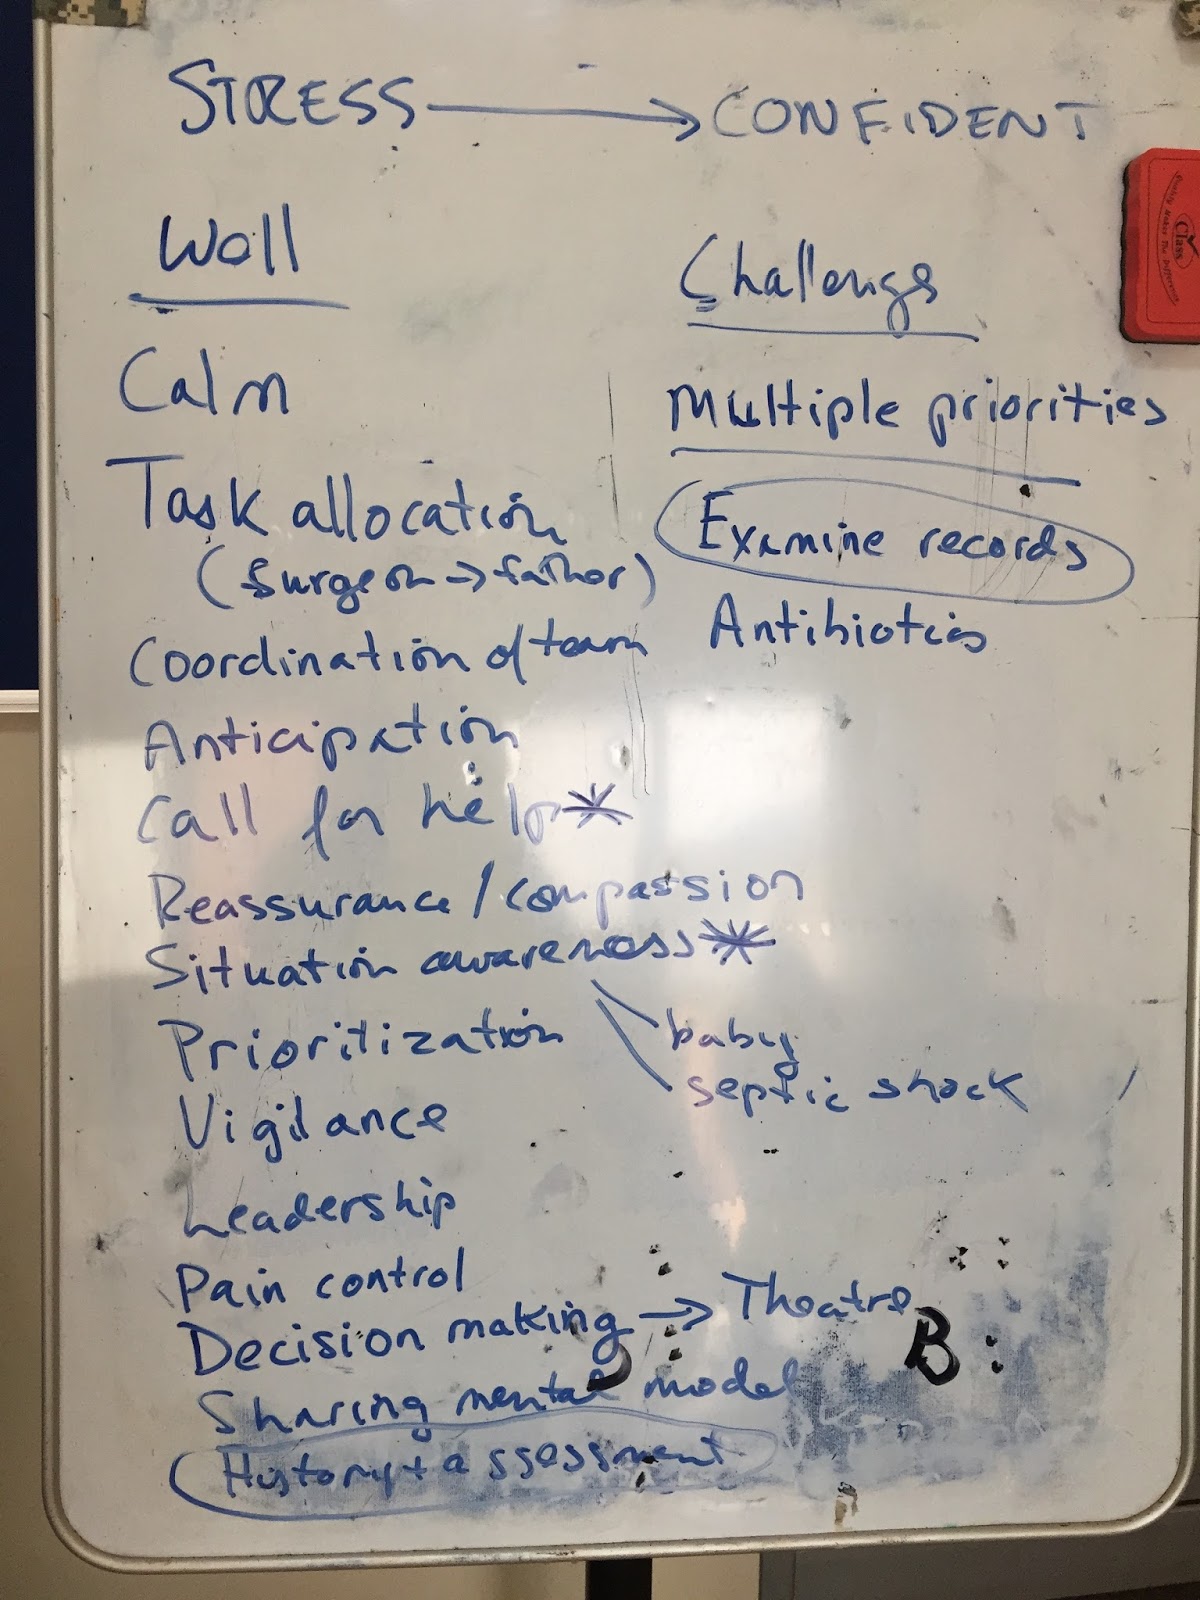 STRESS → CONFIDENT
Well
Challenge
Calm
Multiple priorities
Task allocation
Examine records
(Surgeon → father)
Coordination of team
Antibiotics
Anticipation
Call for help *
Reassurance / compassion
Situation awareness *
baby
septic shock
Prioritization
Vigilance
Leadership
Pain control
Decision making → Theatre
B
Sharing mental model
History + assessment
Class
Quality Makes The Difference